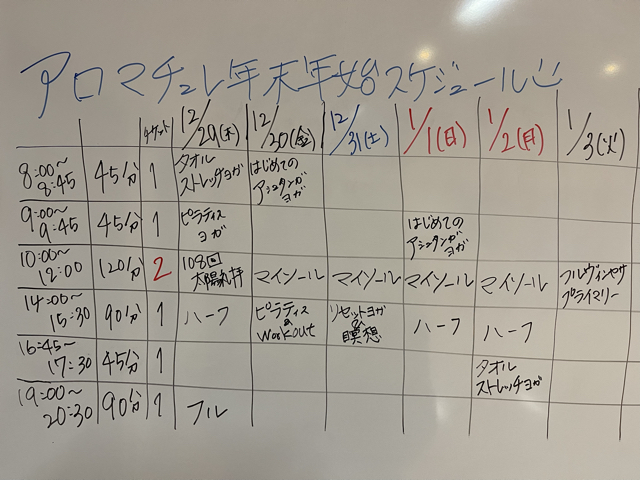 アロマチュレ年末年始スケジュール
チケット 12/29(木) 12/30(金) 12/31(土) 1/1(日) 1/2(月) 1/3(火)
8:00〜 8:45 45分 1 タオル ストレッチヨガ はじめての アシュタンガ ヨガ
9:00〜 9:45 45分 1 ピラティス ヨガ はじめての アシュタンガ ヨガ
10:00〜 12:00 120分 2 108回 太陽礼拝 マイソール マイソール マイソール マイソール フルヴィンヤサ プライマリー
14:00〜 15:30 90分 1 ハーフ ピラティス & workout リセットヨガ & 瞑想 ハーフ ハーフ
16:45〜 17:30 45分 1 タオル ストレッチヨガ
19:00〜 20:30 90分 1 フル